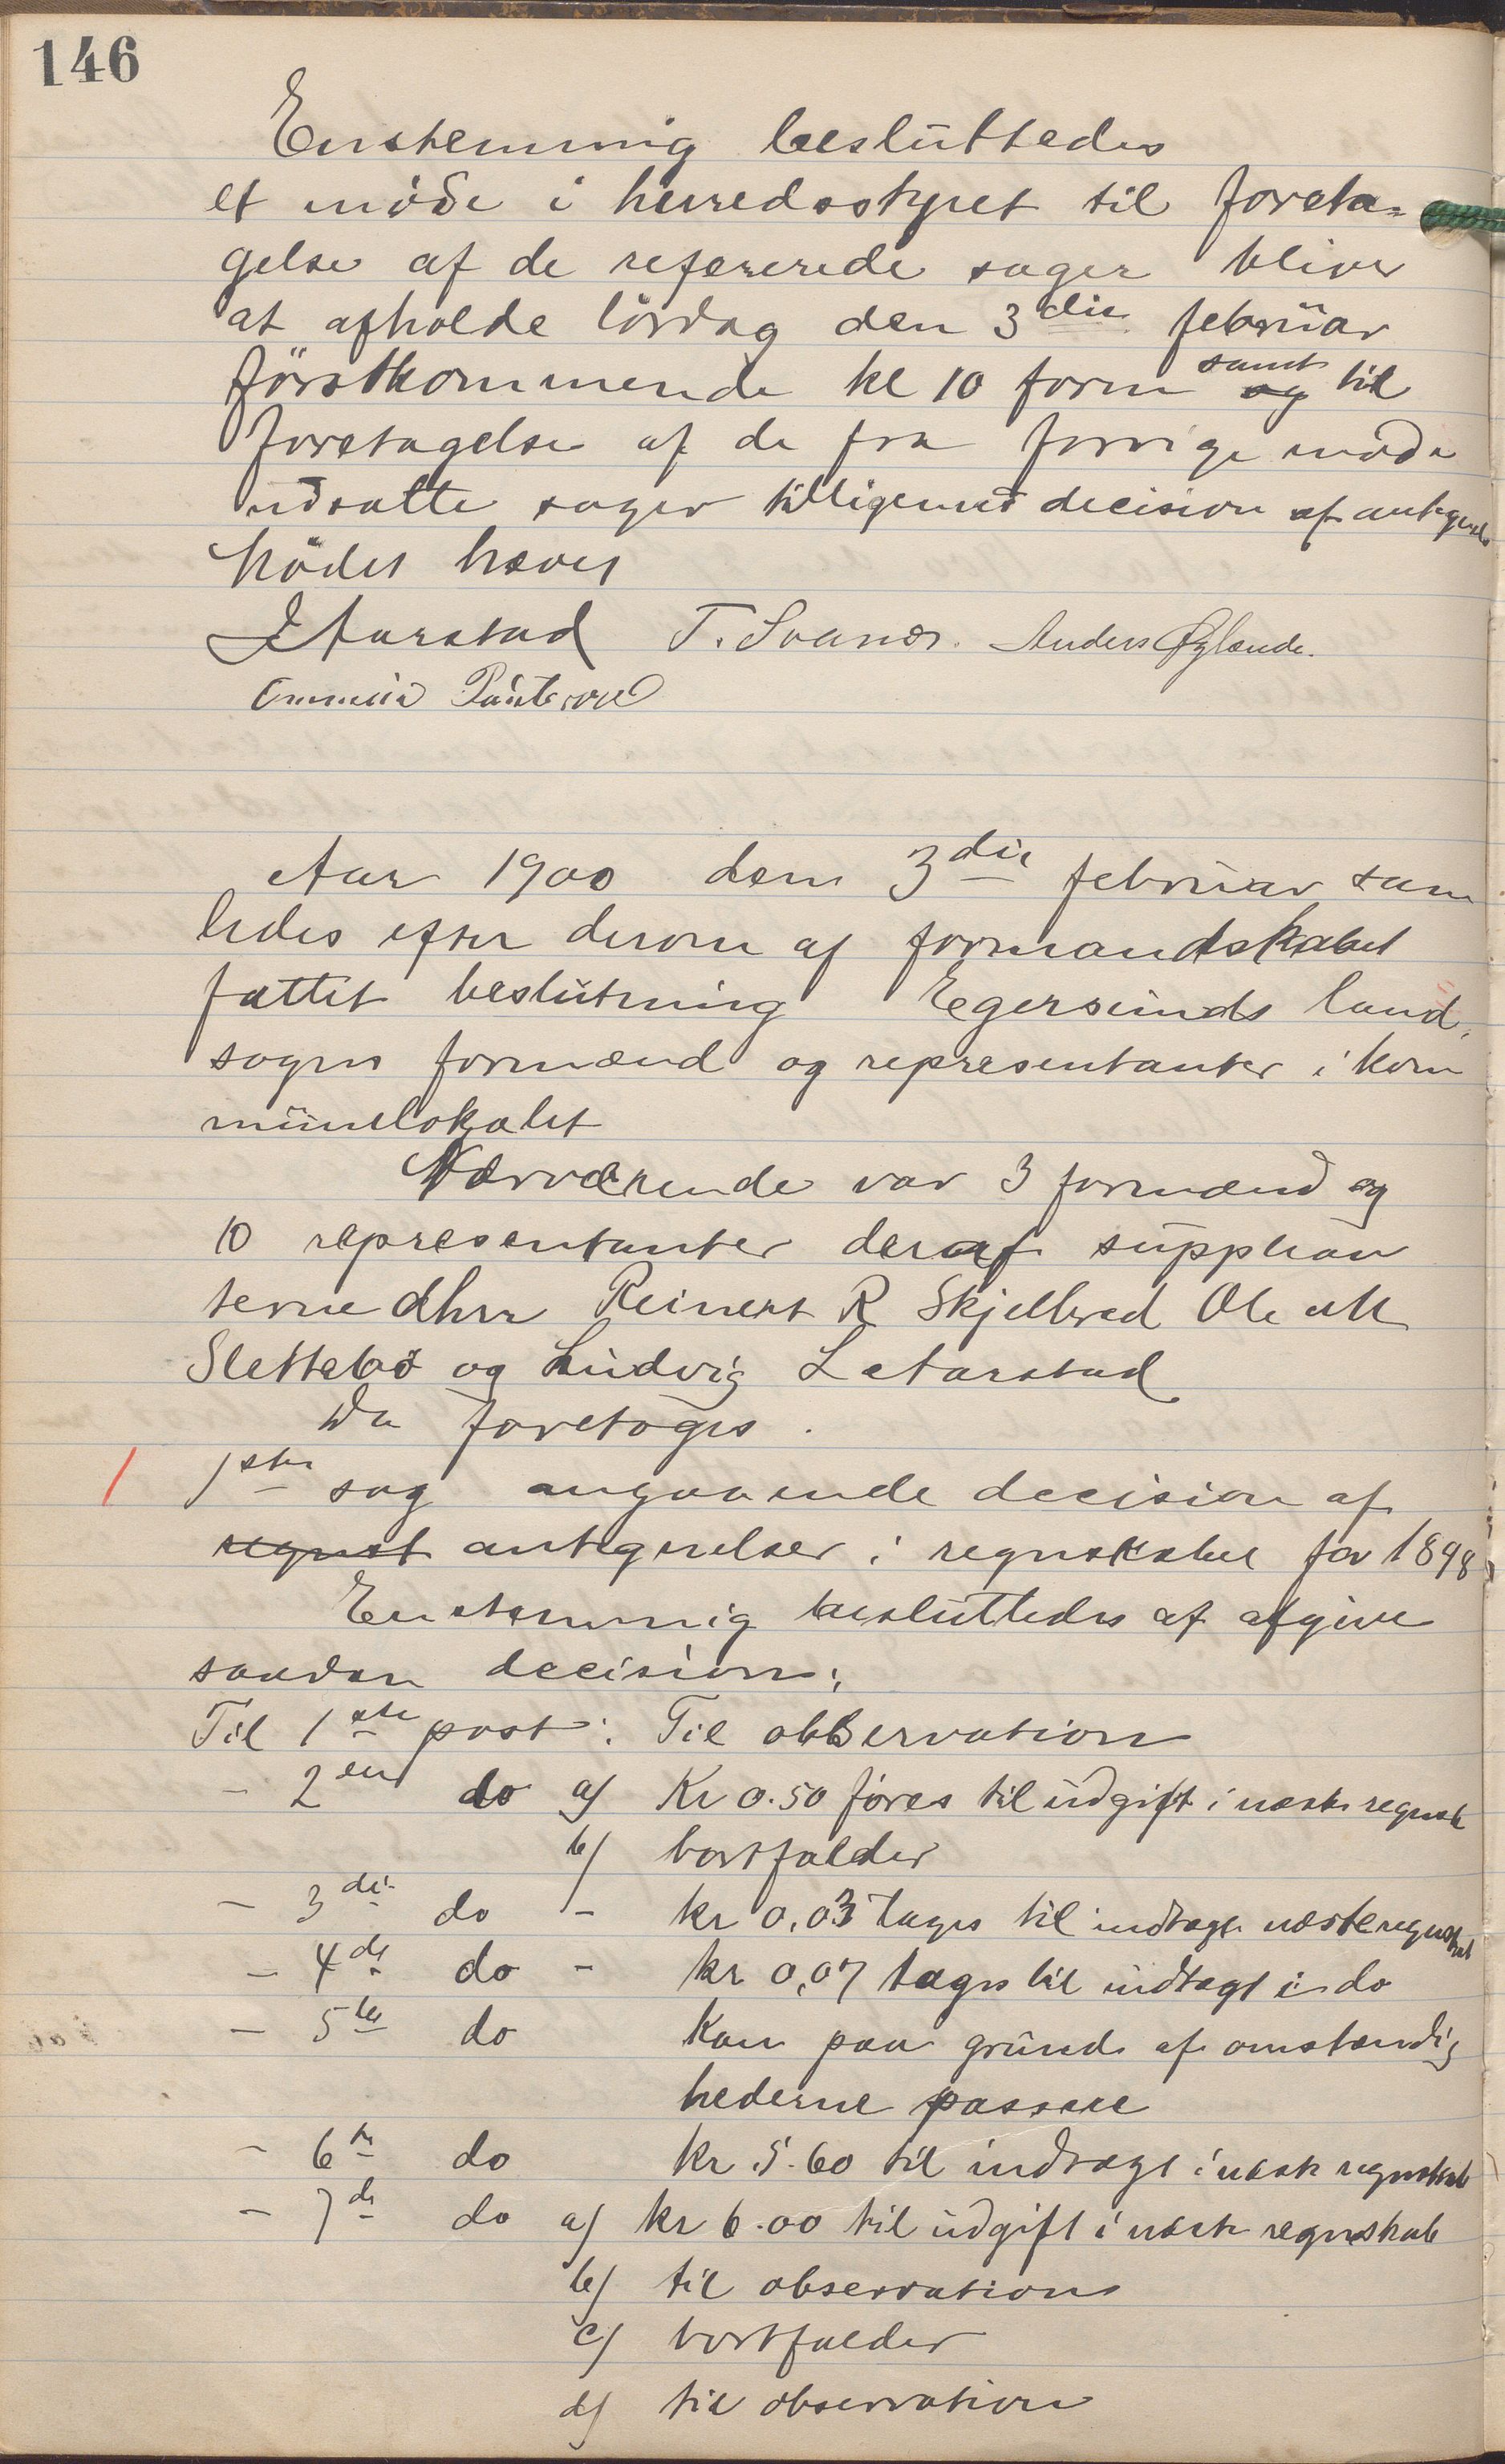 146
Enstemmig besluttedes
et möde i herredsstyret til foreta=
gelse af de refererede sager bliver
at afholde lördag den 3die februar
förstkommende kl 10 form og samt til
foretagelse af de fra forrige möde
udsatte sager tilligemed decision af antegnelser
Mödet hævet
Aarstad T. Svanes. Anders Øglænde.
Aar 1900 den 3die februar sam
ledes efter derom af formandskabet
fattet beslutning Egersunds land
sogns formænd og representanter i kom
munelokalet
Nærværende var 3 formænd og
10 representanter deraf supplean
terne dhrr Reinert R Skjelbred Ole
Slettebö og Ludvig L Aarstad
Da foretoges.
1 1ste sag angaaende decision af
regnst antegnelser i regnskabet for 1898
Enstemmig besluttedes at afgive
saadan decision:
Til 1ste post: Til observation
- 2en do a) Kr 0.50 föres til udgift i næste regnsk
b) bortfalder
- 3die do - kr 0,03 tages til indtægt næste regnskab
- 4de do - kr 0,07 tages til indtægt i do
- 5te do Kan paa grund af omstændig
hederne passere
- 6te do kr 5.60 til indtægt i næste regnskab
- 7de do a) kr 6.00 til udgift i næste regnskab
b) til observation
c) bortfalder
d) til observation